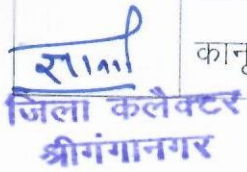 कानू
जिला कलैक्टर
श्रीगंगानगर